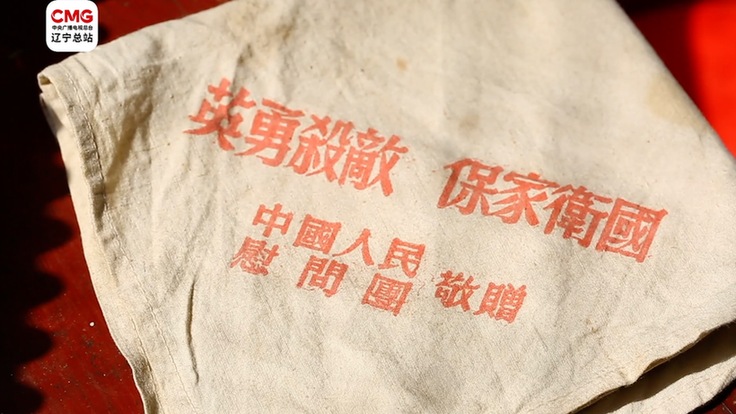 CMG
中央广播电视总台
辽宁总站
英勇殺敵 保家衛國
中國人民
慰問團 敬贈